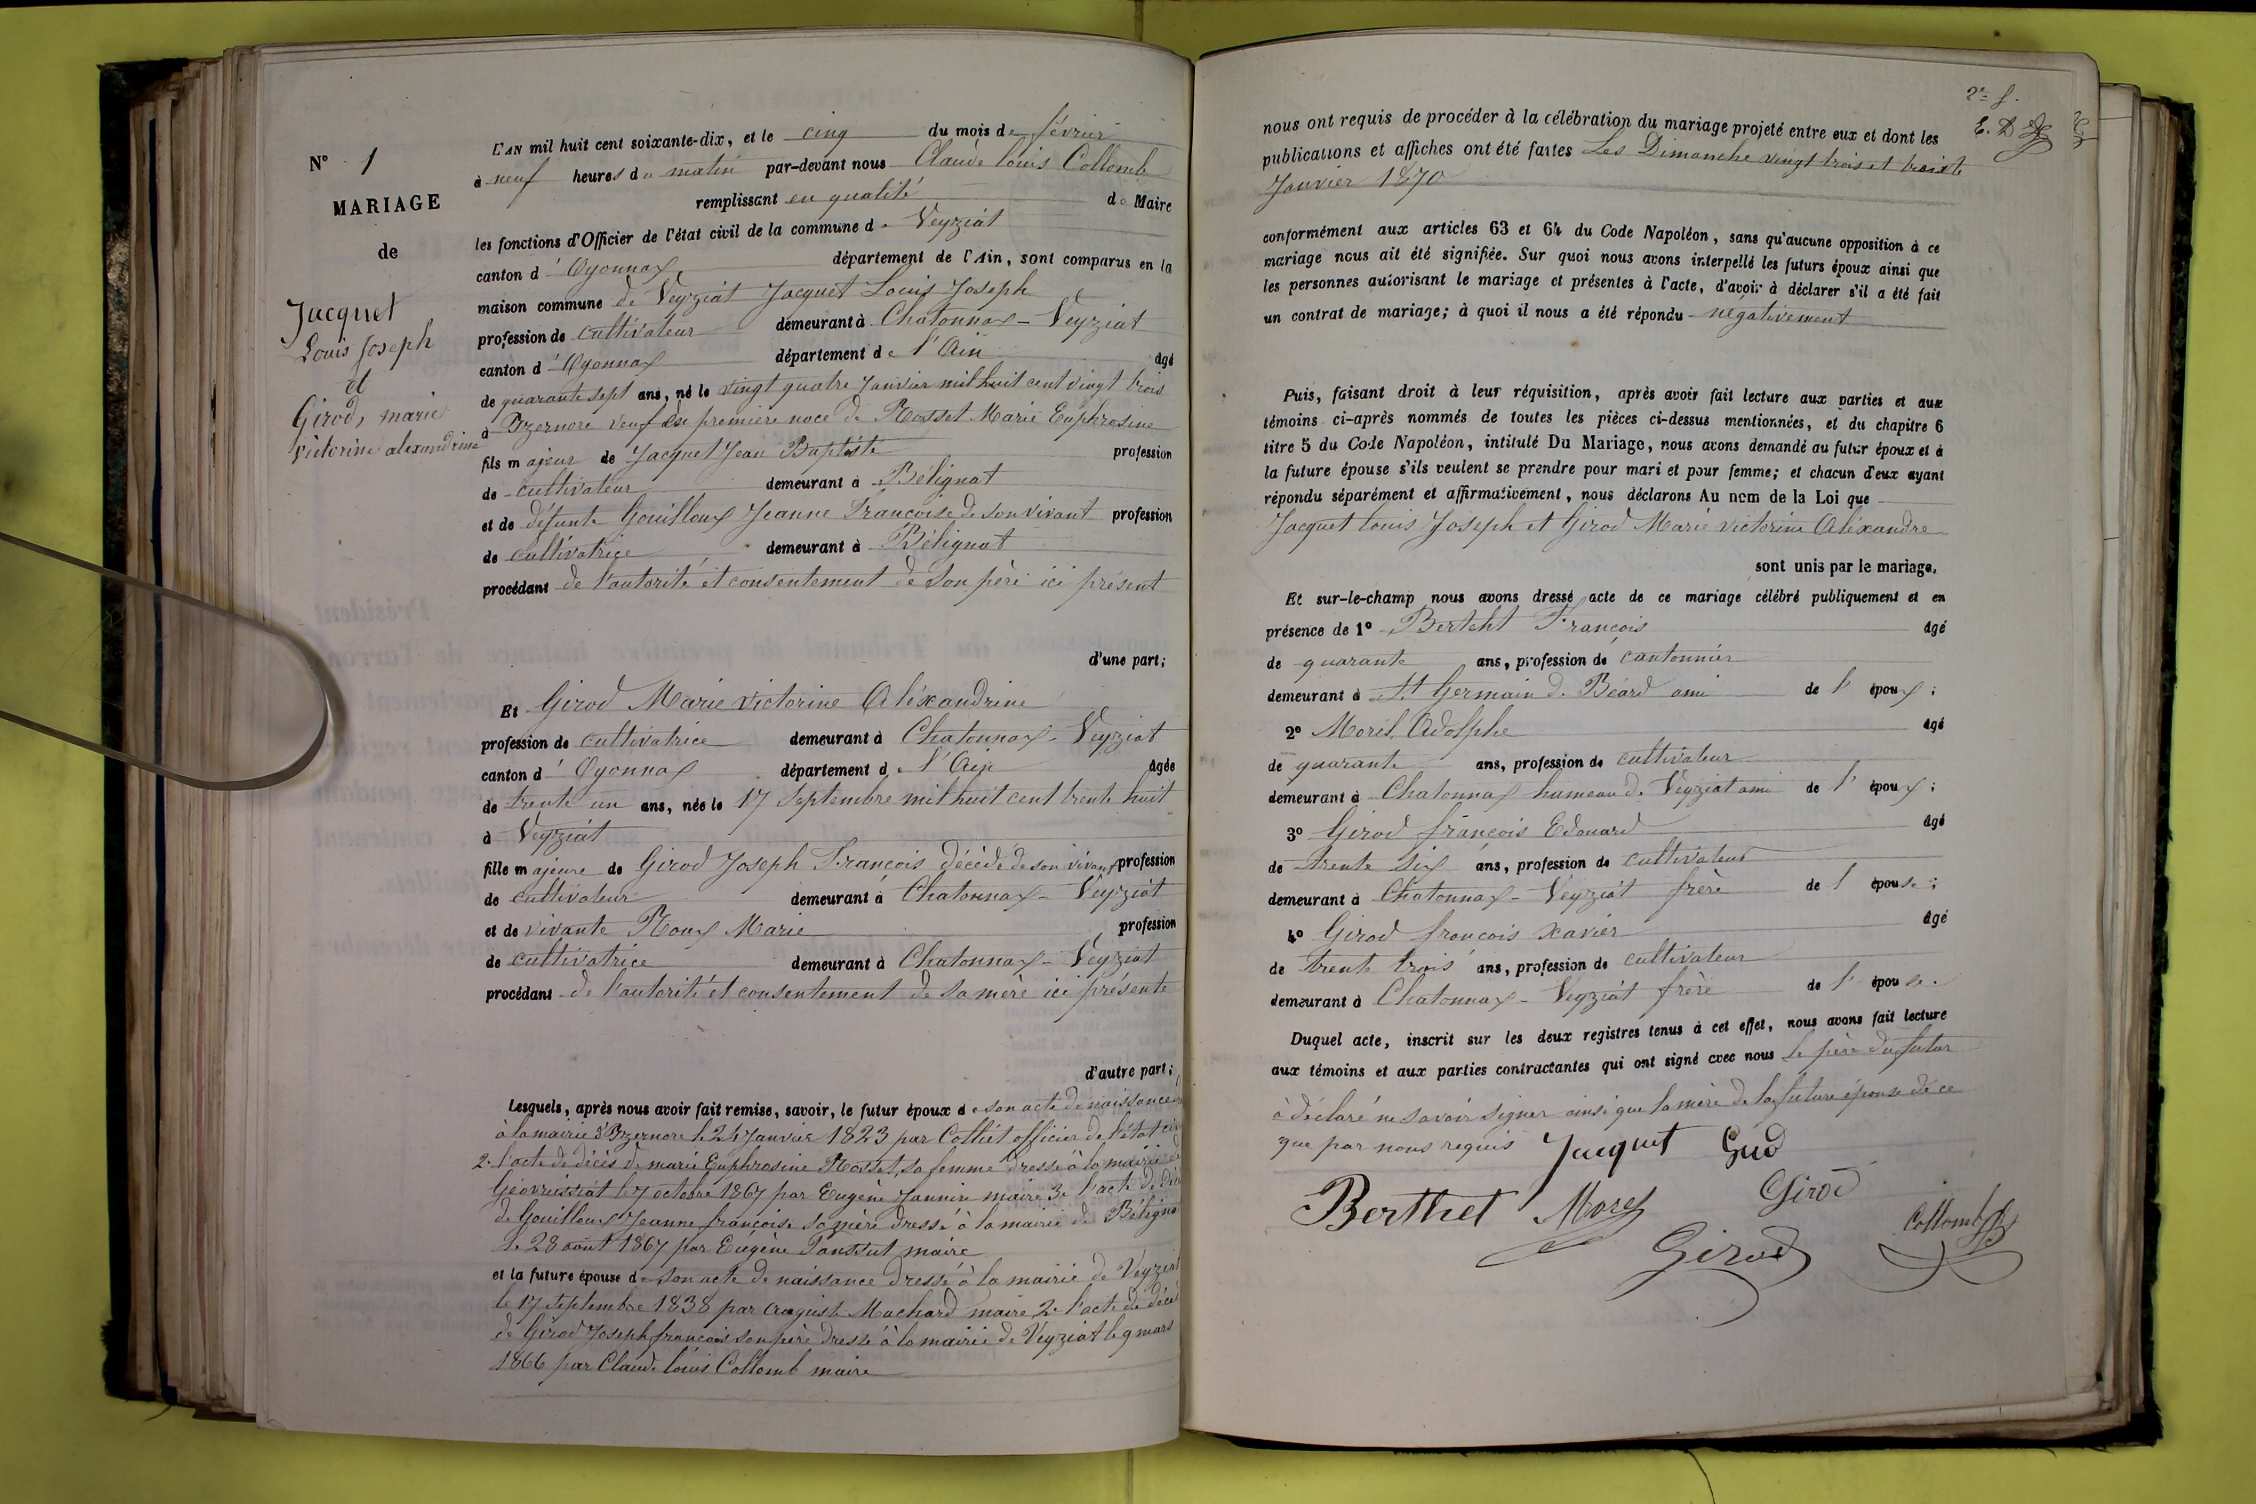 N° 1
MARIAGE
de
Jacquet
Louis Joseph
et
Girod, marie
victorine alexandrine
L'AN mil huit cent soixante-dix, et le cinq du mois de février
à neuf heures du matin par-devant nous Claude Louis Collomb
remplissant en qualité de Maire
les fonctions d'Officier de l'état civil de la commune de Veyziat
canton d'Oyonnax, département de l'Ain, sont comparus en la
maison commune de Veyziat Jacquet Louis Joseph
profession de cultivateur demeurant à Chatonnax - Veyziat
canton d'Oyonnax département de l'Ain âgé
de quarante sept ans, né le vingt quatre Janvier mil huit cent vingt trois
à Izernore veuf de première noce de Rosset Marie Euphrosine
fils majeur de Jacquet Jean Baptiste profession
de cultivateur demeurant à Bélignat
et de défunte Gouilloux Jeanne Françoise de son vivant profession
de cultivatrice demeurant à Bélignat
procédant de l'autorité et consentement de son père ici présent
d'une part;
Et Girod Marie victorine Aléxandrine
profession de cultivatrice demeurant à Chatonnax - Veyziat
canton d'Oyonnax département de l'Ain âgée
de trente un ans, née le 17 Septembre mil huit cent trente huit
à Veyziat
fille majeure de Girod Joseph François décédé de son vivant profession
de cultivateur demeurant à Chatonnax - Veyziat
et de vivante Roux Marie profession
de cultivatrice demeurant à Chatonnax - Veyziat
procédant de l'autorité et consentement de sa mère ici présente
d'autre part;
Lesquels, après nous avoir fait remise, savoir, le futur époux de son acte de naissance
à la mairie d'Izernore le 24 Janvier 1823 par officier de l'état
2. l'acte de décès de marie Euphrosine Rosset, sa femme dressé à la mairie de
Géovreissiat le 7 octobre 1867 par Eugène Jannin maire 3e l'acte de
de Gouilloux Jeanne françoise sa mère dressé à la mairie de Béligna
le 28 août 1867 par Eugène maire
et la future épouse de son acte de naissance dressé à la mairie de Veyziat
le 17 Septembre 1838 par Machard maire 2e l'acte de décè
de Girod Joseph françois son père dressé à la mairie de Veyziat le 9 mars
1866 par Claude Louis Collomb maire
2e f.
nous ont requis de procéder à la célébration du mariage projeté entre eux et dont les
publications et affiches ont été faites Les Dimanche vingt trois et trente
Janvier 1870
conformément aux articles 63 et 64 du Code Napoléon, sans qu'aucune opposition à ce
mariage nous ait été signifiée. Sur quoi nous avons interpellé les futurs époux ainsi que
les personnes autorisant le mariage et présentes à l'acte, d'avoir à déclarer s'il a été fait
un contrat de mariage; à quoi il nous a été répondu négativement
Puis, faisant droit à leur réquisition, après avoir fait lecture aux parties et aux
témoins ci-après nommés de toutes les pièces ci-dessus mentionnées, et du chapitre 6
titre 5 du Code Napoléon, intitulé Du Mariage, nous avons demandé au futur époux et à
la future épouse s'ils veulent se prendre pour mari et pour femme; et chacun d'eux ayant
répondu séparément et affirmativement, nous déclarons Au nom de la Loi que
Jacquet Louis Joseph et Girod Marie victorine Aléxandre
sont unis par le mariage.
Et sur-le-champ nous avons dressé acte de ce mariage célébré publiquement et en
présence de 1° Berteht François âgé
de quarante ans, profession de cantonnier
demeurant à St Germain de Béard ami de l'époux;
2° Morel Adolphe âgé
de quarante ans, profession de cultivateur
demeurant à Chatonnax hameau de Veyziat ami de l'époux;
3° Girod françois Edouard âgé
de trente six ans, profession de cultivateur
demeurant à Chatonnax - Veyziat frère de l'épouse;
4° Girod françois xavier âgé
de trente trois ans, profession de cultivateur
demeurant à Chatonnax - Veyziat frère de l'épouse.
Duquel acte, inscrit sur les deux registres tenus à cet effet, nous avons fait lecture
aux témoins et aux parties contractantes qui ont signé avec nous le père du futur
à déclaré ne savoir signer ainsi que la mère de la future épouse de ce
que par nous requis Jacquet
Berthet Morel Girod
Girod Collomb